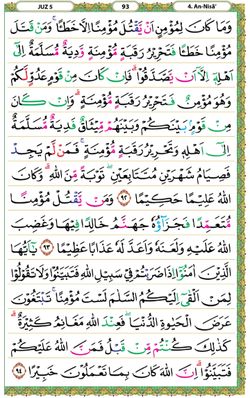 JUZ 5 93 4. An-Nisā'
وَمَا كَانَ لِمُؤْمِنٍ أَنْ يَقْتُلَ مُؤْمِنًا إِلَّا خَطَـًٔا ۚ وَمَنْ قَتَلَ
مُؤْمِنًا خَطَـًٔا فَتَحْرِيرُ رَقَبَةٍ مُؤْمِنَةٍ وَدِيَةٌ مُسَلَّمَةٌ إِلَىٰ
أَهْلِهِ إِلَّا أَنْ يَصَّدَّقُوا ۚ فَإِنْ كَانَ مِنْ قَوْمٍ عَدُوٍّ لَكُمْ
وَهُوَ مُؤْمِنٌ فَتَحْرِيرُ رَقَبَةٍ مُؤْمِنَةٍ ۖ وَإِنْ كَانَ
مِنْ قَوْمٍ بَيْنَكُمْ وَبَيْنَهُمْ مِيثَاقٌ فَدِيَةٌ مُسَلَّمَةٌ
إِلَىٰ أَهْلِهِ وَتَحْرِيرُ رَقَبَةٍ مُؤْمِنَةٍ ۖ فَمَنْ لَمْ يَجِدْ
فَصِيَامُ شَهْرَيْنِ مُتَتَابِعَيْنِ تَوْبَةً مِنَ اللَّهِ ۗ وَكَانَ
اللَّهُ عَلِيمًا حَكِيمًا ٩٢ وَمَنْ يَقْتُلْ مُؤْمِنًا
مُتَعَمِّدًا فَجَزَاؤُهُ جَهَنَّمُ خَالِدًا فِيهَا وَغَضِبَ
اللَّهُ عَلَيْهِ وَلَعَنَهُ وَأَعَدَّ لَهُ عَذَابًا عَظِيمًا ٩٣ يَا أَيُّهَا
الَّذِينَ آمَنُوا إِذَا ضَرَبْتُمْ فِي سَبِيلِ اللَّهِ فَتَبَيَّنُوا وَلَا تَقُولُوا
لِمَنْ أَلْقَىٰ إِلَيْكُمُ السَّلَامَ لَسْتَ مُؤْمِنًا ۚ تَبْتَغُونَ
عَرَضَ الْحَيَاةِ الدُّنْيَا ۖ فَعِنْدَ اللَّهِ مَغَانِمُ كَثِيرَةٌ ۚ
كَذَٰلِكَ كُنْتُمْ مِنْ قَبْلُ فَمَنَّ اللَّهُ عَلَيْكُمْ
فَتَبَيَّنُوا ۚ إِنَّ اللَّهَ كَانَ بِمَا تَعْمَلُونَ خَبِيرًا ٩٤